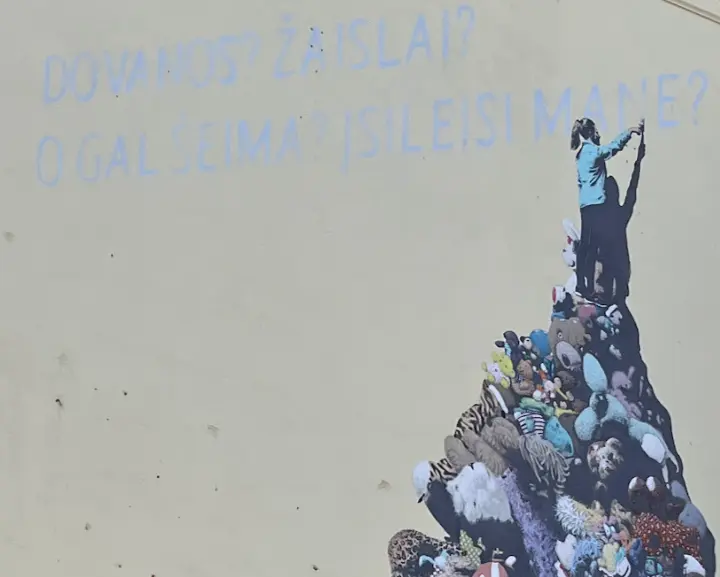 DOVANOS? ŽAISLAI?
O GAL ŠEIMA? ĮSILEISI MANE?